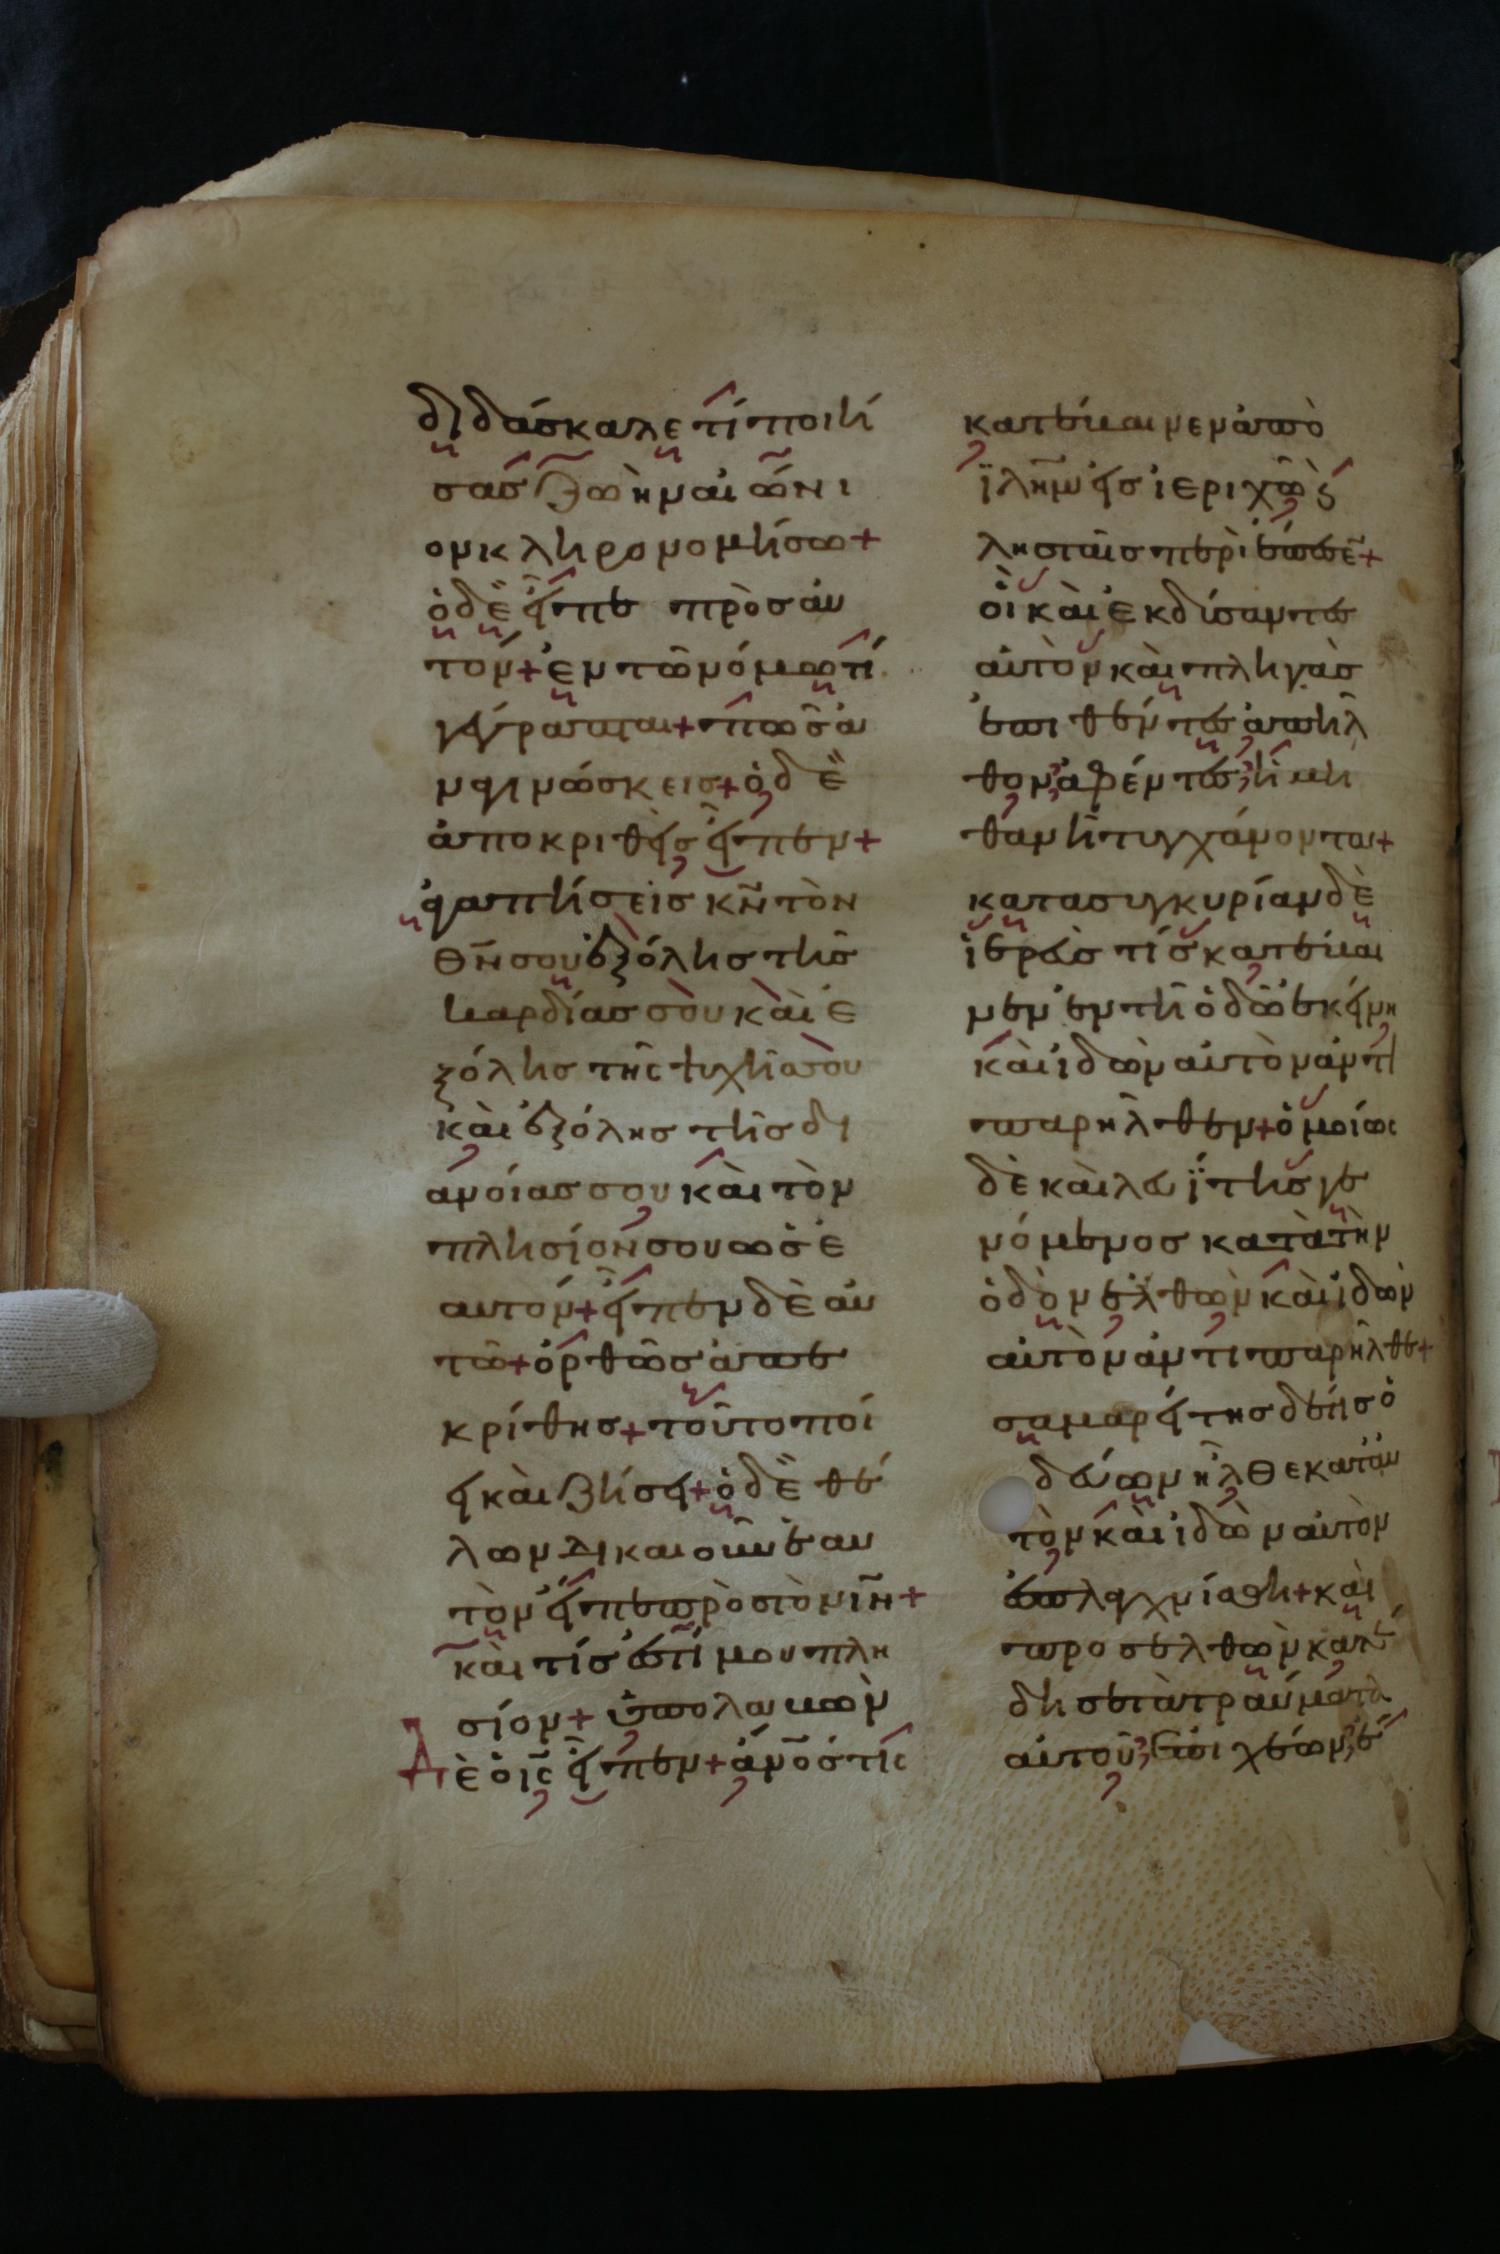 διδάσκαλε τί ποιή
σας ζωὴν αἰώνι
ον κληρονομήσω+
ὁ δὲ εἶπε πρὸς αὐ
τόν+ ἐν τῶ νόμω τί
γέγραπται+ πῶς ἀ
ναγινώσκεις+ ὁ δὲ
ἀποκριθεὶς εἶπεν+
ἀγαπήσεις κ̅ν̅ τὸν
θ̅ν̅ σου ἐξ ὅλης τῆς
καρδίας σου καὶ ἐ
ξ όλης τῆς ψυχῆς σου
καὶ ἐξ όλης τῆς δι
ανοίας σου καὶ τὸν
πλησίον σου ὡς ἐ
αυτόν+ εἶπεν δὲ αὐ
τῶ+ ὀρθῶς ἀπε
κρίθης+ τοῦτο ποί
ει καὶ ζήσει+ ὁ δὲ θέ
λων δικαιοῦν ἐαυ
τὸν εἶπε πρὸς τὸν ι̅ν̅+
καὶ τίς ἐστί μου πλη
σίον+ ὑπολαβὼν
δὲ ὁ ι̅ς̅ εἶπεν+ ἄν̅ο̅ς τίς
κατέβαινεν ἀπὸ
ϊλημ εἰς ἱεριχῶ ϗ
λησταῖς περιέπεσε̅+
οἳ καὶ ἐκδύσαντες
αὐτὸν καὶ πληγὰς
ἐπιθέντες ἀπῆλ
θον, ἀφέντες, ἡμι
θανῆ τυγχάνοντα+
κατα συγκυρίαν δὲ
ἱερεύς τίς κατέβαι
νεν ἐν τῆ ὁδῶ ἐκείνη
καὶ ἰδὼν αὐτὸν ἀντι
παρῆλθεν+ ὁμοίως
δὲ καὶ λευΐτης γε
νόμενος κατὰ τὴν
ὁδὸν ἐλθὼν καὶ ἰδὼν
αὐτὸν ἀντιπαρῆλθε+
σαμαρείτης δέ τις ὁ
δεύων ἦλθε κατ' αὐ
τὸν καὶ ἰδὼν αὐτὸν
ἐσπλαγχνίσθη+ καὶ
προσελθὼν κατέ
δησε τὰ τραύματα
αὐτοῦ, ἐπιχέων, ἔ